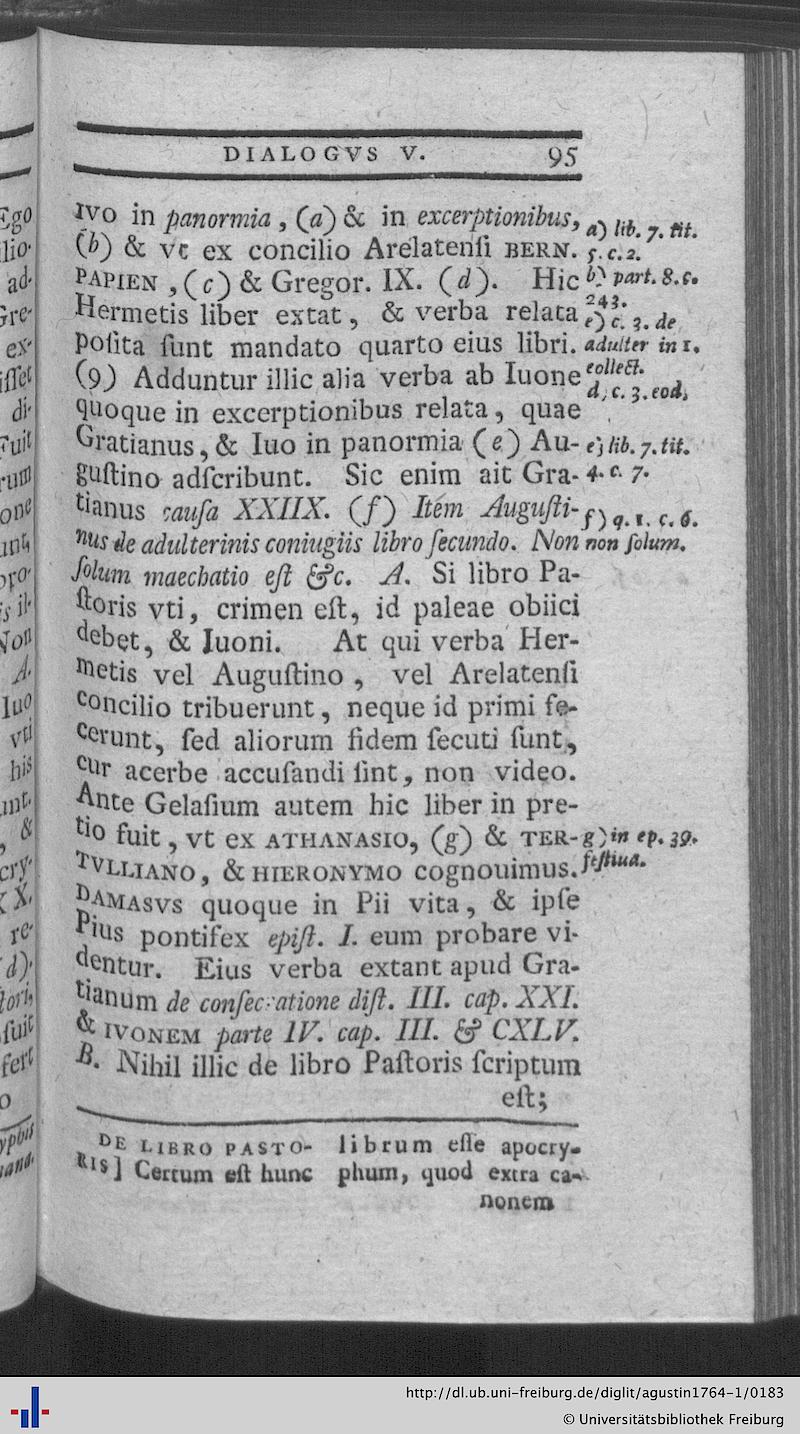 DIALOGVS V. 95
IVO in panormia, (a) & in excerptionibus,
(b) & vt ex concilio Arelatenſi BERN.
PAPIEN, (c) & Gregor. IX. (d). Hic
Hermetis liber extat, & verba relata
poſita ſunt mandato quarto eius libri.
(9) Adduntur illic alia verba ab Iuone
quoque in excerptionibus relata, quae
Gratianus, & Iuo in panormia (e) Au-
guſtino adſcribunt. Sic enim ait Gra-
tianus cauſa XXIIX. (f) Item Auguſti-
nus de adulterinis coniugiis libro ſecundo. Non
ſolum maechatio eſt &c. A. Si libro Pa-
ſtoris vti, crimen eſt, id paleae obiici
debet, & Iuoni. At qui verba Her-
metis vel Auguſtino, vel Arelatenſi
concilio tribuerunt, neque id primi fe-
cerunt, ſed aliorum fidem ſecuti ſunt,
cur acerbe accuſandi ſint, non video.
Ante Gelaſium autem hic liber in pre-
tio fuit, vt ex ATHANASIO, (g) & TER-
TVLLIANO, & HIERONYMO cognouimus.
DAMASVS quoque in Pii vita, & ipſe
Pius pontifex epiſt. I. eum probare vi-
dentur. Eius verba extant apud Gra-
tianum de conſecratione diſt. III. cap. XXI.
& IVONEM parte IV. cap. III. & CXLV.
B. Nihil illic de libro Paſtoris ſcriptum
eſt;
a) lib. 7. tit.
5. c. 2.
b) part. 8. c.
243.
c) c. 3. de
adulter in 1.
collect.
d, c. 3. eod.
e) lib. 7. tit.
4. c. 7.
f) q. 1. c. 6.
non ſolum.
g) in ep. 39.
feſtiua.
DE LIBRO PASTO-
RIS] Certum eſt hunc
librum eſſe apocry-
phum, quod extra ca-
nonem
http://dl.ub.uni-freiburg.de/diglit/agustin1764-1/0183
© Universitätsbibliothek Freiburg